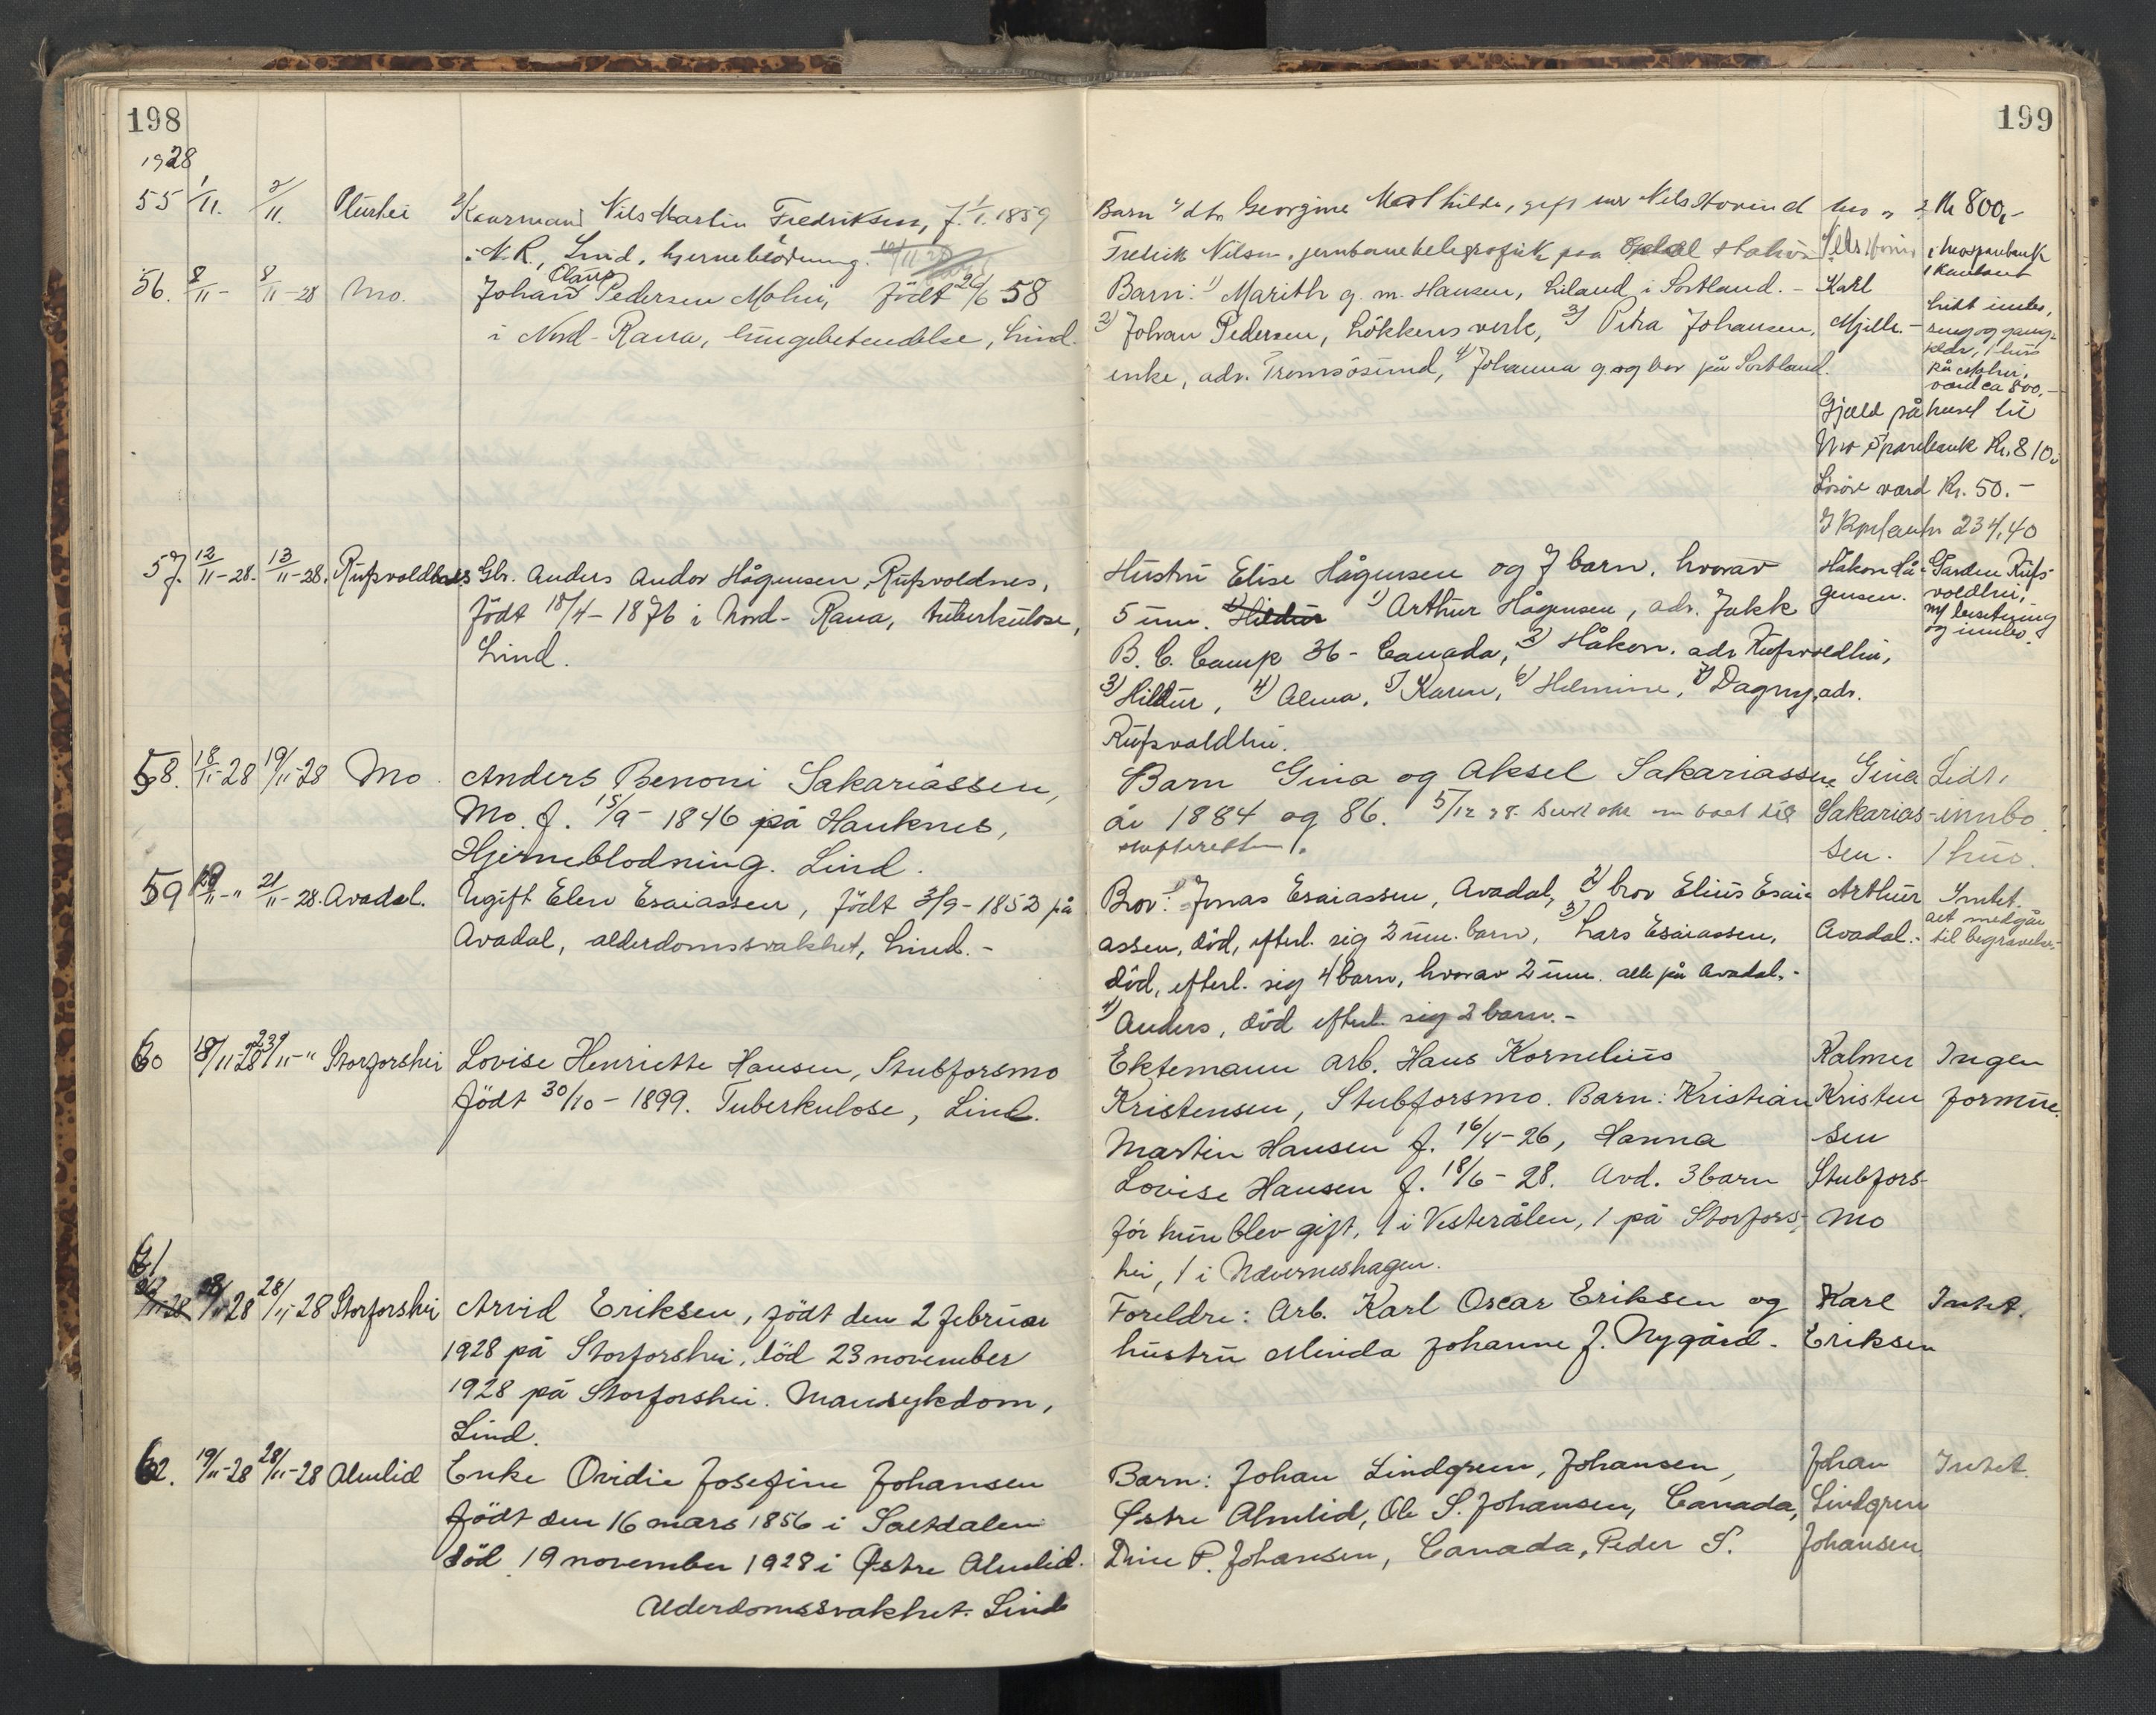 198
1928
55 1/11. 2/11. Plurhei Kaarmand Nils Martin Fredriksen, f. 1/1. 1859
i N. R., Lind, hjerneblödning.
56. 8/11- 8/11-28 Mo. Johan Olaus Pedersen Mohei, födt 26/6 58
i Nord-Rana, lungebetendelse, Lind.
57. 12/11-28. 13/11-28. Rufsvoldnes Gbr. Anders Andor Hågensen, Rufsvoldnes,
födt 18/4-1876 i Nord-Rana, tuberkulose,
Lind.
58. 18/11-28 19/11-28 Mo. Anders Benoni Sakariassen,
Mo. f. 15/9-1846 på Hauknes,
Hjerneblodning. Lind.
59 19/11-" 21/11-28. Avadal. Ugift Elen Esaiassen, födt 3/9-1852 på
Avadal, alderdomssvakhet, Lind.-
60 18/11-28 23/11-" Storforshei Lovise Henriette Hansen, Stubforsmo
födt 30/10-1899. Tuberkulose, Lind.
61
23/11-28 28/11-28 Storforshei Arvid Eriksen, födt den 2 februar
1928 på Storforshei, död 23 november
1928 på Storforshei. Mavesykdom,
Lind.
62. 19/11-28 28/11-28 Almlid Enke Ovidie Josefine Johansen
födt den 16 mars 1856 i Saltdalen
död 19 november 1928 i Østre Almlid.
Alderdomssvakhet. Lind
199
Barn 1) dtr Georgine Mathilde, gift m Nils Hovind Mo Kr 800,-
Fredrik Nilsen, jernbanetelegrafist paa Opdal station Nils Hovind
Barn: 1) Marith g. m. Hansen, Liland i Sortland. - Karl
2) Johan Pedersen, Lökkens verk, 3) Petra Johansen, Mjelle.-
enke, adr. Tromsösund, 4) Johanna g. og bor på Sortland.
Litt innbo,
seng og gang-
klær, 1 hus
på Mohei,
værd ca 800.-
Gjæld på huset til
Mo Sparebank Kr. 810.
Lösöre værd Kr. 50.-
I kontanter 234,40
Hustru Elise Hågensen og 7 barn, hvorav Håkon Hå- Garden Rufs-
5 um. Hildur 1) Arthur Hågensen, adr. Jakk gensen. voldhei,
m/ besetning
og innbo.
B. C. Camp 36 - Canada, 2) Håkon, adr Rufsvoldhei,
3) Hildur, 4) Alma, 5) Karen, 6) Helmine, 7) Dagny, adr.
Rufsvoldhei.
Barn Gina og Aksel Sakariassen Gina Lidt
år 1884 og 86. 5/12 28. Sakarias- innbo.
skifteretten. sen. 1 hus.
Bror: 1) Jonas Esaiassen, Avadal, 2) bror Elius Esai- Arthur Intet.
assen, död, efterl. sig 2 um. barn, 3) Lars Esaiassen, Avadal.- alt medgår
til begravelse.-
död, efterl. sig 4 barn, hvorav 2 um. alle på Avadal.-
4) Anders, död efterl. sig 2 barn.-
Ektemann arb. Hans Kornelius Kalmer Ingen
Kristensen, Stubforsmo. Barn: Kristian Kristen formue.
Martin Hansen f. 16/4-26, Hanna sen
Lovise Hansen f. 18/6-28. Avd. 3 barn Stubfors-
för hun blev gift, 1 i Vesterålen, 1 på Storfors- mo
hei, 1 i Næverneshagen.
Foreldre: Arb. Karl Oscar Eriksen og Karl Intet.
hustru Minda Johanne f. Nygård. Eriksen
Barn: Johan Lindgren, Johansen, Johan Intet.
Østre Almlid, Ole S. Johansen, Canada, Lindgren
Dine P. Johansen, Canada, Peder S. Johansen